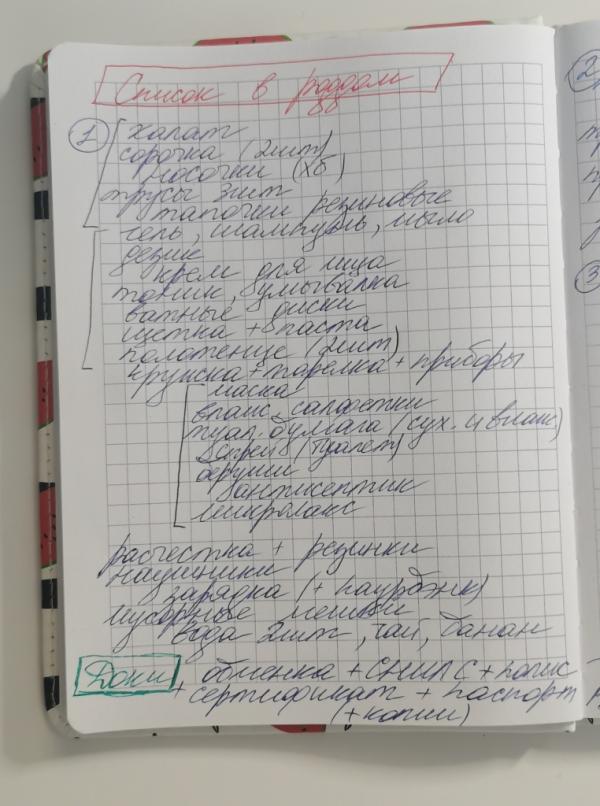 Список в роддом
1 халат
сорочка (2шт)
носочки (хб)
трусы 3шт
тапочки резиновые
гель, шампунь, мыло
дезик
крем для лица
тоник, умывалка
ватные диски
щетка + паста
полотенце (2шт)
кружка + тарелка + приборы
маска
влаж. салфетки
туал. бумага (сух. и влаж)
спрей (туалет)
беруши
антисептик
микролакс
расческа + резинки
наушники
зарядка (+ паурбэнк)
мусорные мешки
вода 2шт, чай, банан
Доки, обменка + СНИЛС + полис
+ сертификат + паспорт
(+ копии)
2
3